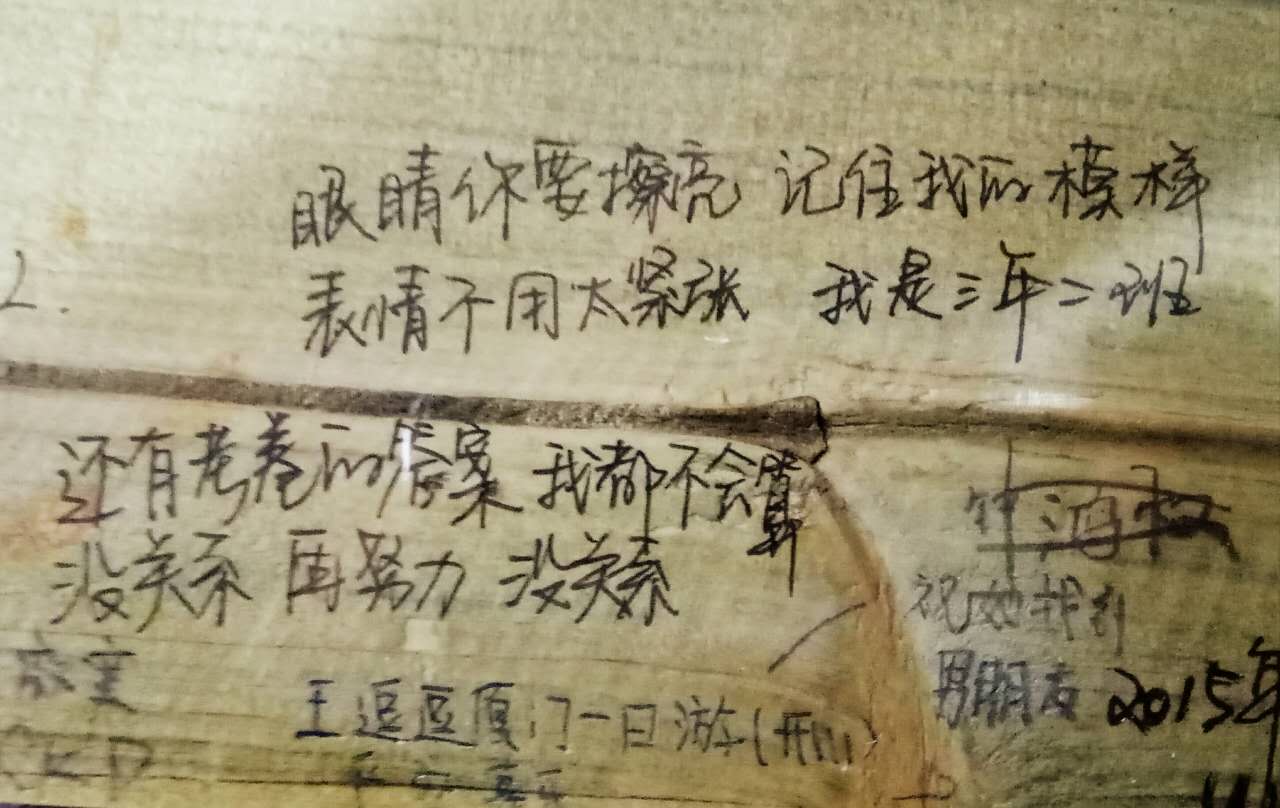 眼睛你要擦亮 记住我的模样
2.
表情不用太紧张 我是三年二班
还有考卷的答案 我都不会算
没关系 再努力 没关系
祝她找到
男朋友 2015年
王逗逗厦门一日游